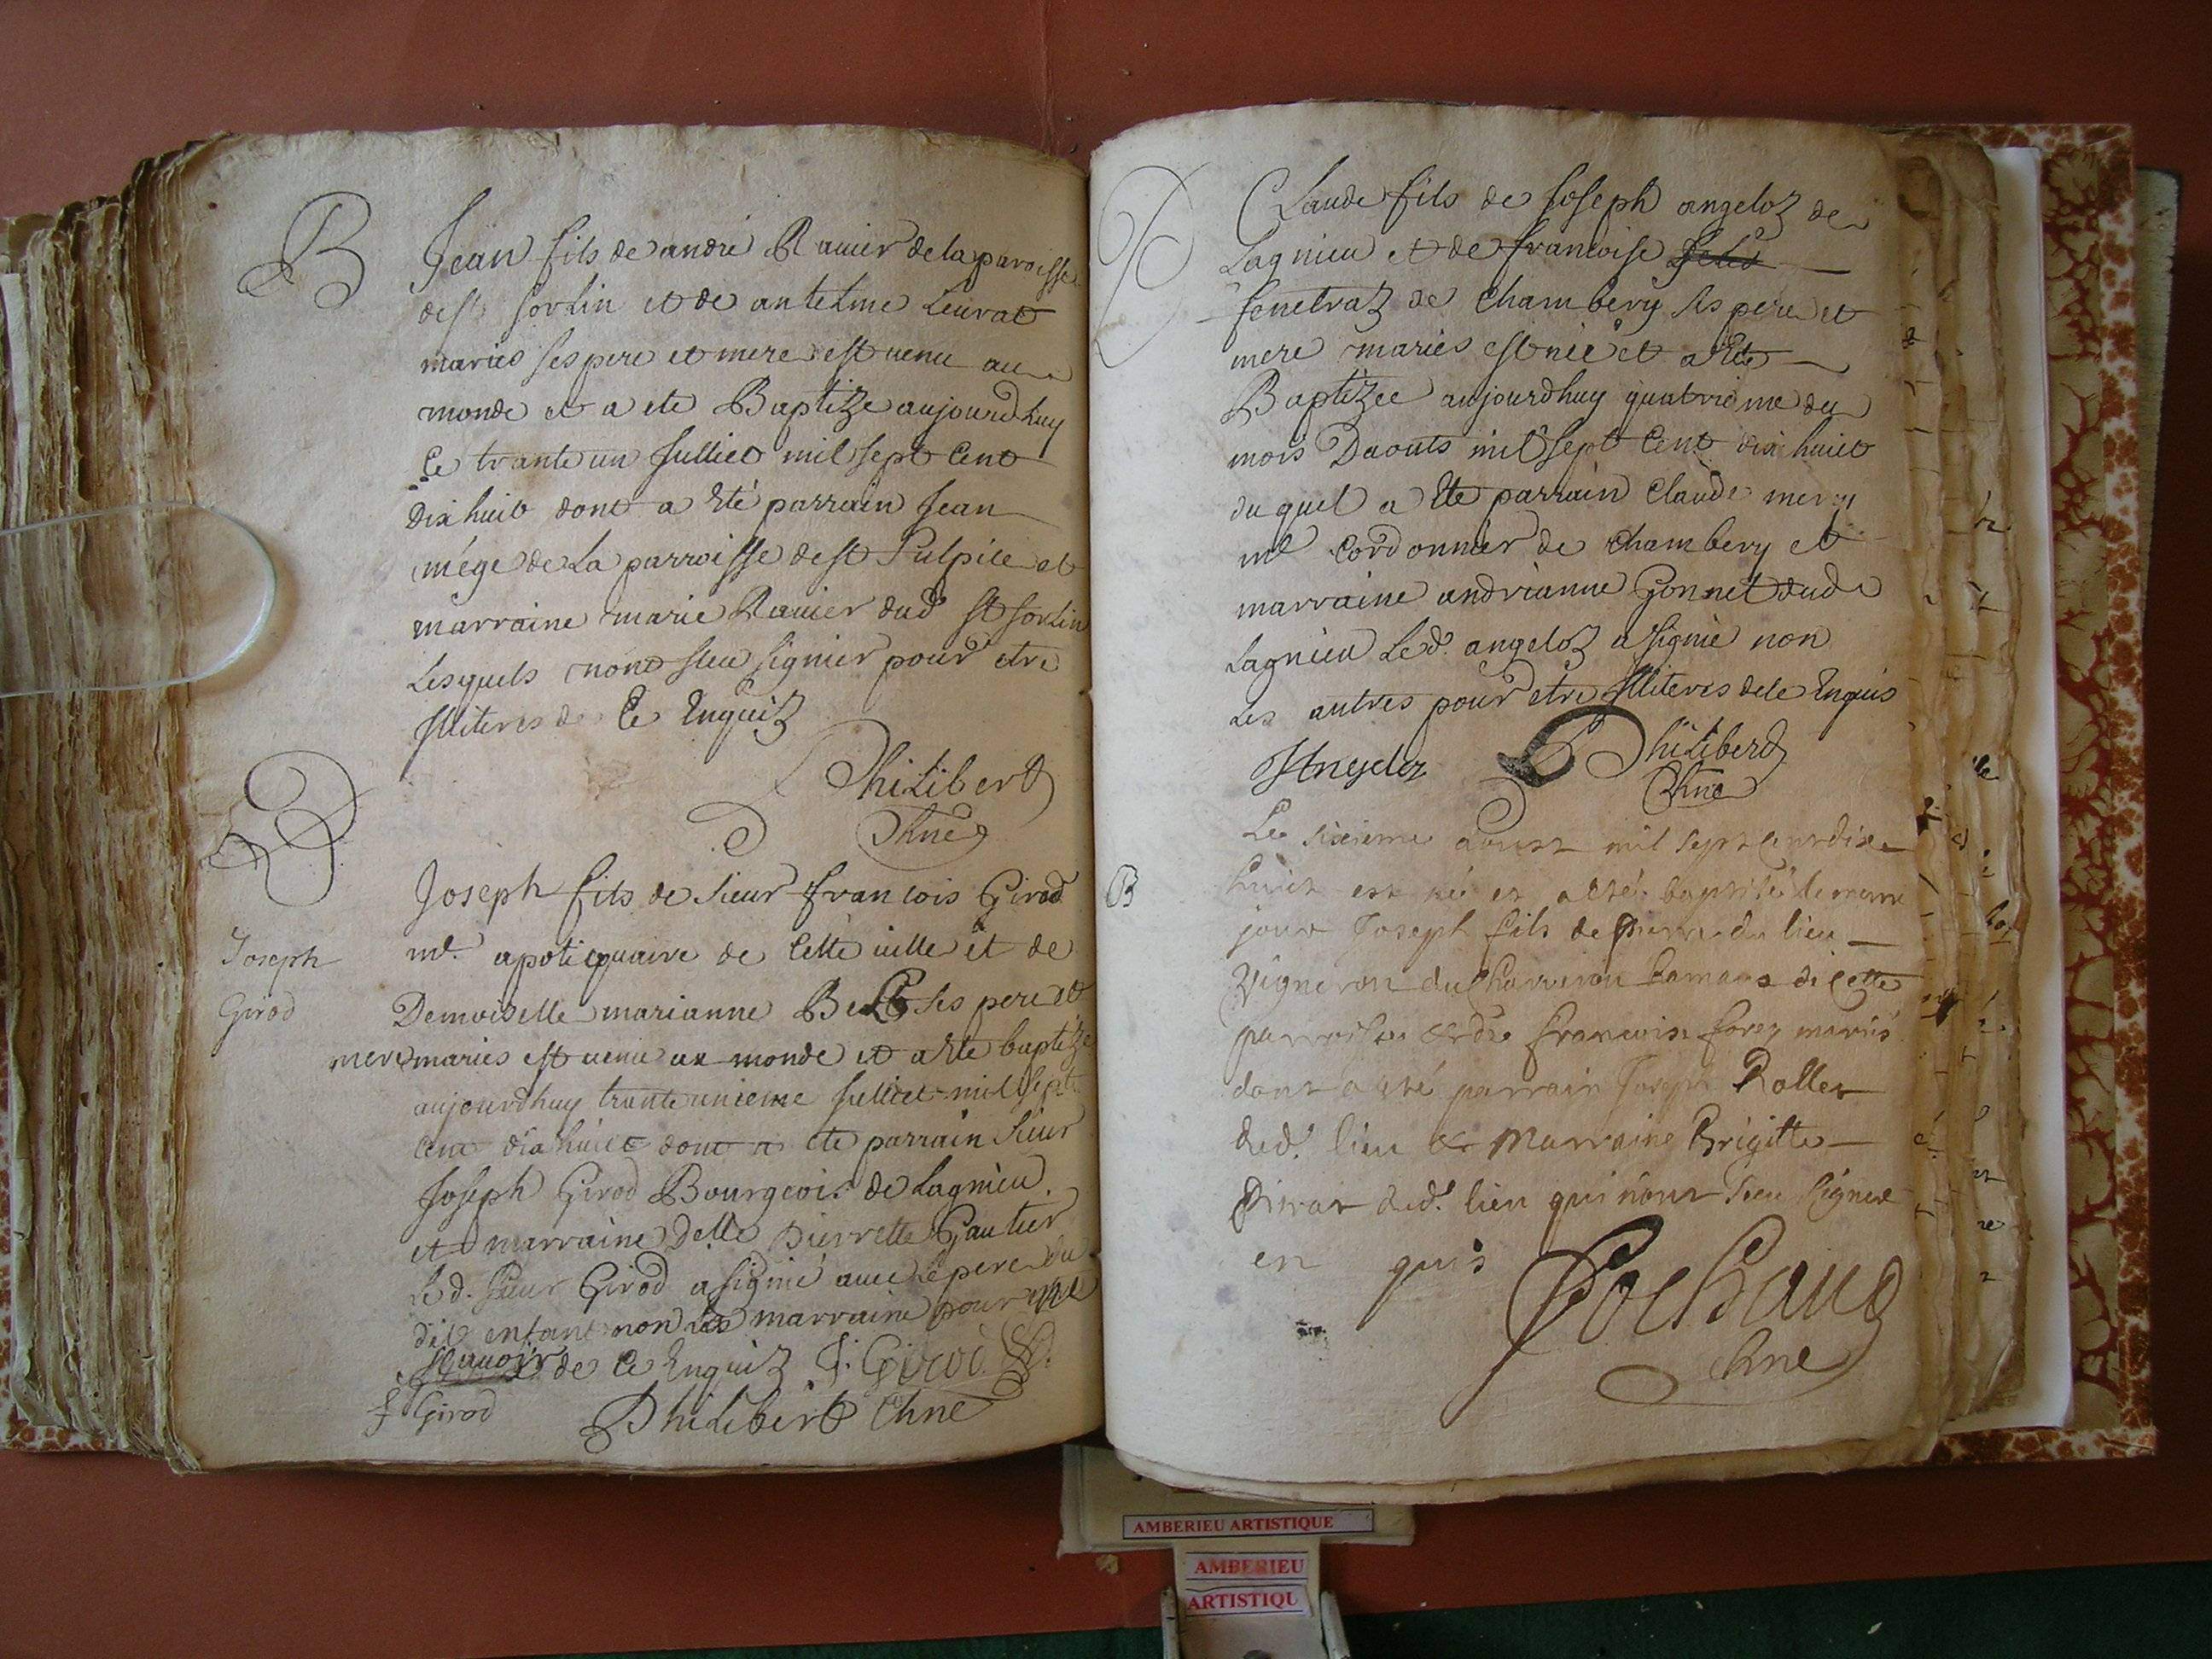 B
Jean fils de andré Rauier de la paroisse
de st sorlin et de antelme Leurat
mariés ses pere et mere est uenu au
monde et a ete Baptizé aujourdhuy
Ce trante un Julliet mil sept Cent
dix huit dont a été parrain Jean
mége de La parroisse de st Sulpice et
marraine marie Rauier dud st sorlin
Lesquels nont sceu signier pour etre
Illiteres de Ce Enquiz
Philibert
Chne
B
Joseph
Girod
Joseph fils de Sieur francois Girod
me apotiquaire de Cette uille et de
Demoiselle marianne ses pere et
mere maries est uenu au monde et a ete baptizé
aujourdhuy trante unieme Julliet mil sept
Cent dix huict dont a ete parrain Sieur
Joseph Girod Bourgeois de Lagnieu
et marraine Delle Pierrette Gautier
Le d. Sieur Girod a signié auec Le pere du
dit enfant non Les marraine pour ne
scauoir de Ce Enquiz J. Girod
f Girod
Philibert Chne
B
Claude fils de Joseph angeloz de
Lagnieu et de francoise
fenetraz de Chambery ses pere et
mere mariés est née et a Eté
Baptizee aujourdhuy quatrieme du
mois Daouts mil sept Cent dix huit
du quel a Ete parrain Claude mercy
me Cordonnier de Chambery et
marraine andrianne Gonnet dud
Lagnieu Le d. angeloz a signié non
Les autres pour etre Illiteres de Ce Enquis
JAngeloz
Philiberd
Chne
B
Le sixieme aoust mil sept cent dixe
huict est né et a esté baptisé le meme
jour Joseph fils de Pierre du lieu
Vigneron du Charveron hamaux de Cette
parroisse & de francoise forey mariés
dont a esté parrain Joseph Rollet
dud. lieu & Marraine Brigitte
Pirat dud. lieu qui n'ont sceu signer
en quis
Pochaud
Chne
AMBERIEU ARTISTIQUE
AMBERIEU
ARTISTIQU